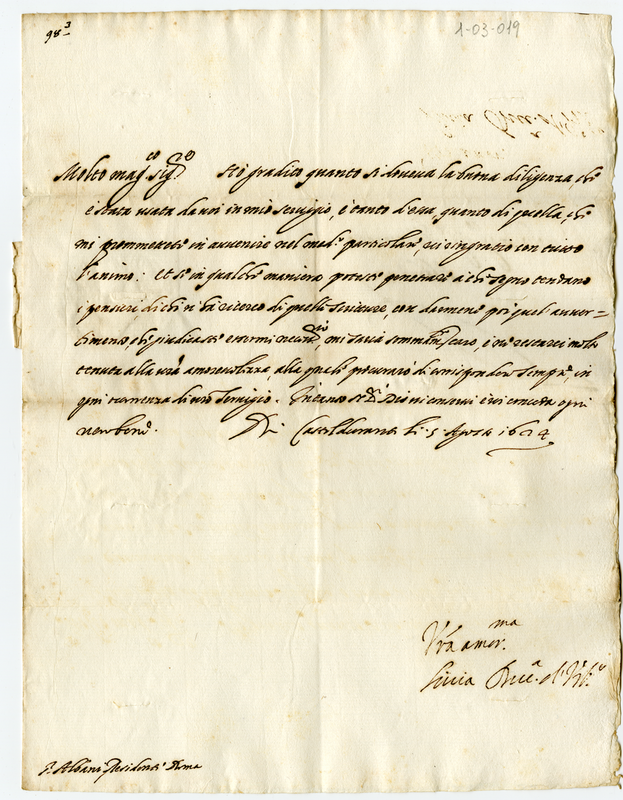 98 3
1-03-019
Molto mag.co sig.re Hò gradito quanto si doueua la buona diligenza, che
è stata usata da uoi in mio seruigio, e tanto d'essa, quanto di quella, che
mi promettete in auuenire nel med.o particolare, ui ringratio con tutto
l'animo: Et se in qualche maniera poteste penetrare à che segno tendano
i pensieri di chi ui hà ricerco di quelle scritture, con darmene poi quel auuer=
timento che giudicaste essermi necess.rio, mi saria sommam.te caro, e ne restarei molto
tenuta alla vrã amoreuolezza, alla quale procurarò di corrisponder sempre, in
ogni occorrenza di uro seruigio. Intanto Dio ui conserui e ui conceda ogni
uero bene. Di Casteldurante li 5 Agosto 1624
Vrã amor.ma
Liuia Duc.a d'Urb.o
Albani Residente Roma